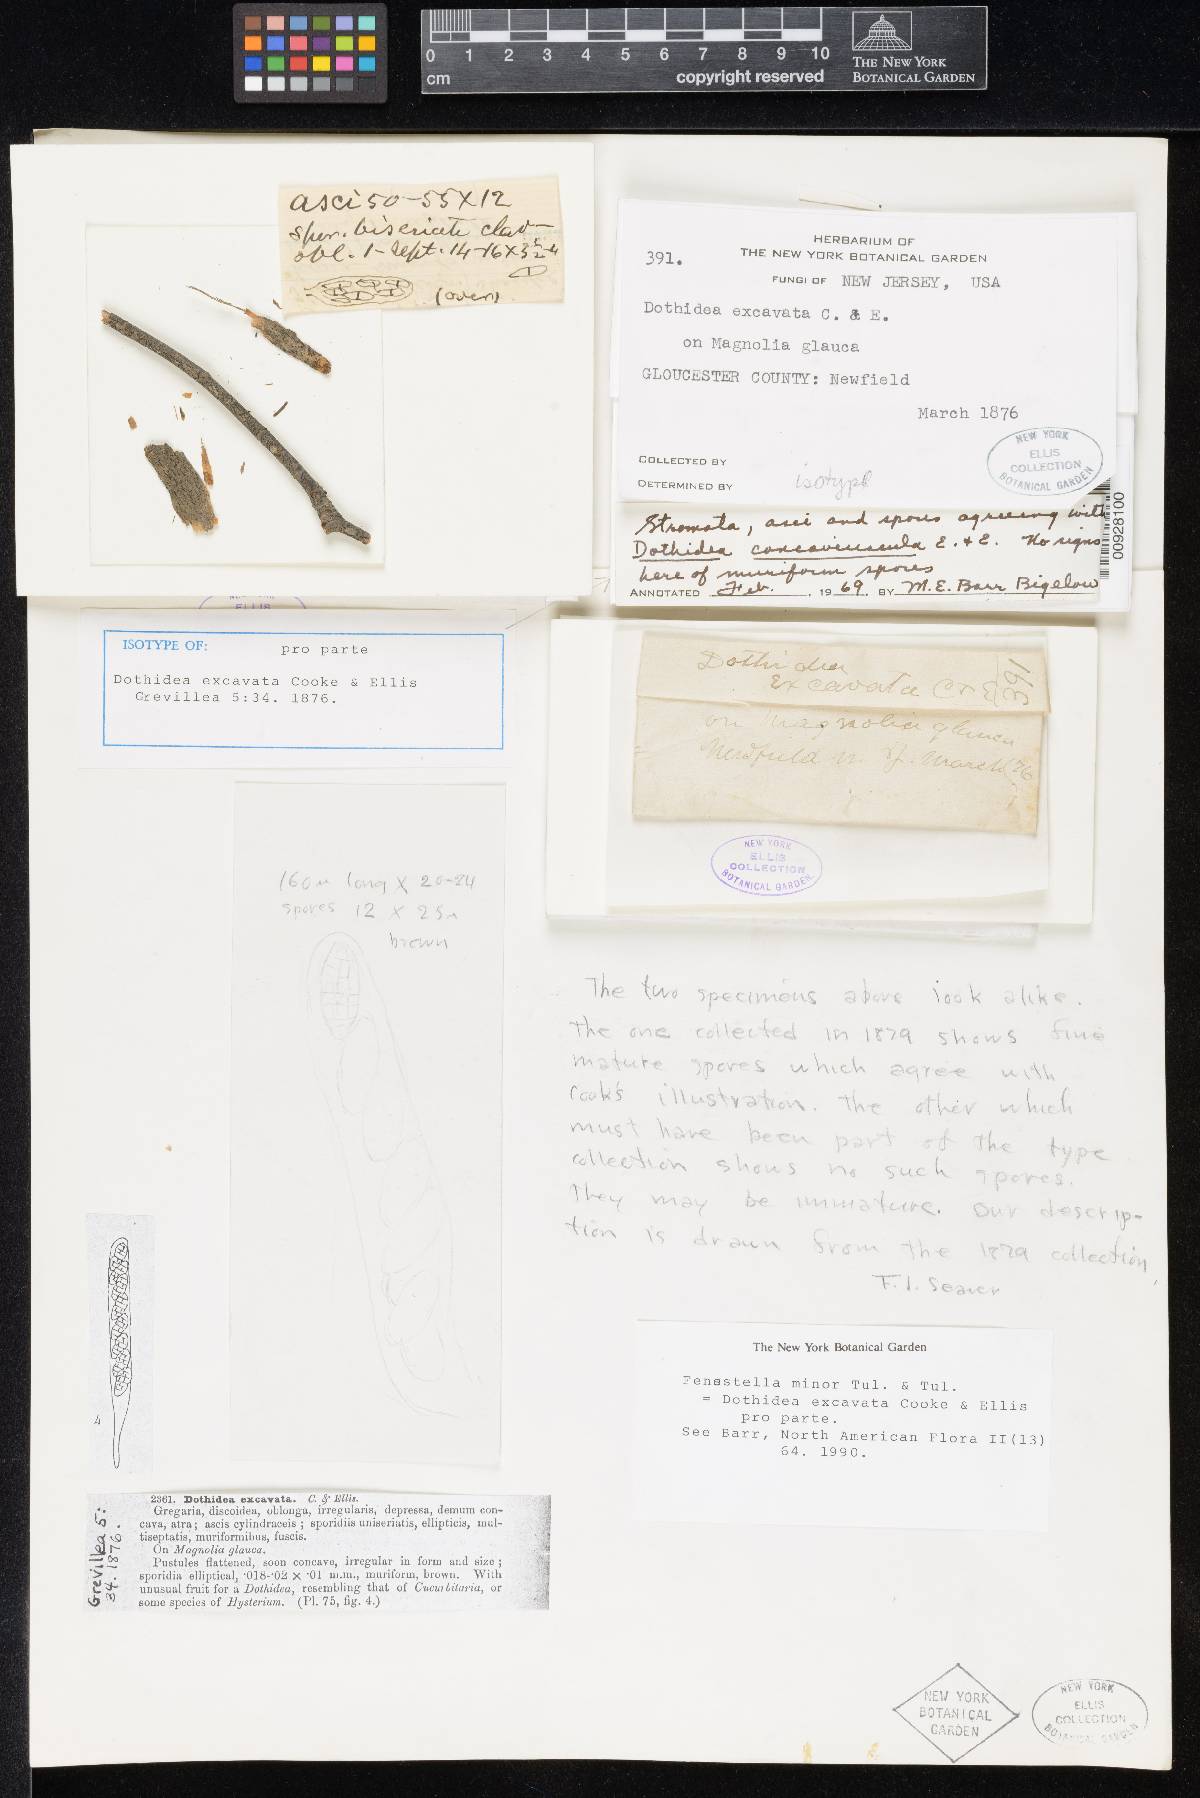 0 1 2 3 4 5 6 7 8 9 10
cm
copyright reserved
THE NEW YORK
BOTANICAL GARDEN
asci 50-55X12
spor. biseriate clav-
obl. 1-sept. 14-16X3½-4
(over)
HERBARIUM OF
THE NEW YORK BOTANICAL GARDEN
391.
FUNGI OF NEW JERSEY, USA
Dothidea excavata C. & E.
on Magnolia glauca
GLOUCESTER COUNTY: Newfield
March 1876
NEW YORK
ELLIS
COLLECTION
BOTANICAL GARDEN
COLLECTED BY
DETERMINED BY
isotype
00928100
Stromata, asci and spores agreeing with
Dothidea concaviuscula E. & E. No signs
here of muriform spores
ANNOTATED Feb. , 1969. BY M.E. Barr Bigelow
ELLIS
ISOTYPE OF: pro parte
Dothidea excavata Cooke & Ellis
Grevillea 5:34. 1876.
Dothidea
Excavata C & E
391
on Magnolia glauca
Newfield N. J. March 76
NEW YORK
ELLIS
COLLECTION
BOTANICAL GARDEN
160µ long X 20-24
spores 12 X 25µ
brown
The two specimens above look alike.
The one collected in 1879 shows fine
mature spores which agree with
Cook's illustration. The other which
must have been part of the type
collection shows no such spores.
They may be immature. Our descrip-
tion is drawn from the 1879 collection,
F. J. Seaver
4
The New York Botanical Garden
Fenestella minor Tul. & Tul.
= Dothidea excavata Cooke & Ellis
pro parte.
See Barr, North American Flora II(13)
64. 1990.
Grevillea 5:
34. 1876.
2361. Dothidea excavata. C. & Ellis.
Gregaria, discoidea, oblonga, irregularis, depressa, demum con-
cava, atra; ascis cylindraceis; sporidiis uniseriatis, ellipticis, mul-
tiseptatis, muriformibus, fuscis.
On Magnolia glauca.
Pustules flattened, soon concave, irregular in form and size;
sporidia elliptical, ·018-·02 × ·01 m.m., muriform, brown. With
unusual fruit for a Dothidea, resembling that of Cucurbitaria, or
some species of Hysterium. (Pl. 75, fig. 4.)
NEW YORK
BOTANICAL
GARDEN
NEW YORK
ELLIS
COLLECTION
BOTANICAL GARDEN